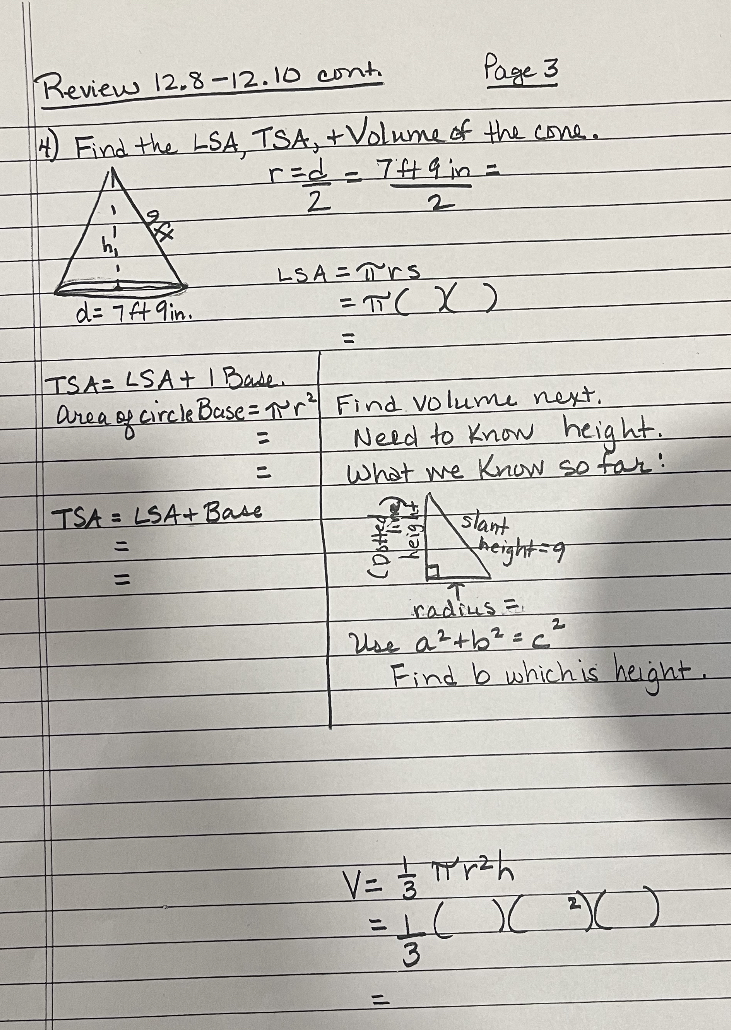 Review 12.8-12.10 cont. Page 3
4) Find the LSA, TSA, + Volume of the cone.
r = d/2 = 7ft 9in/2 =
9 ft
h
d= 7ft 9in.
LSA = πrs
= π( )( )
=
TSA= LSA + 1 Base.
Area of circle Base = πr²
=
=
TSA = LSA + Base
=
=
Find volume next.
Need to know height.
What we know so far:
(Dotted line) height
slant height = 9
radius =
Use a² + b² = c²
Find b which is height.
V = 1/3 πr²h
= 1/3 ( )( ²)( )
=